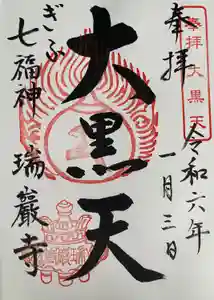 奉拝
奉拝大黒天
令和六年
一月三日
大黒天
ぎふ
七福神
瑞巖寺